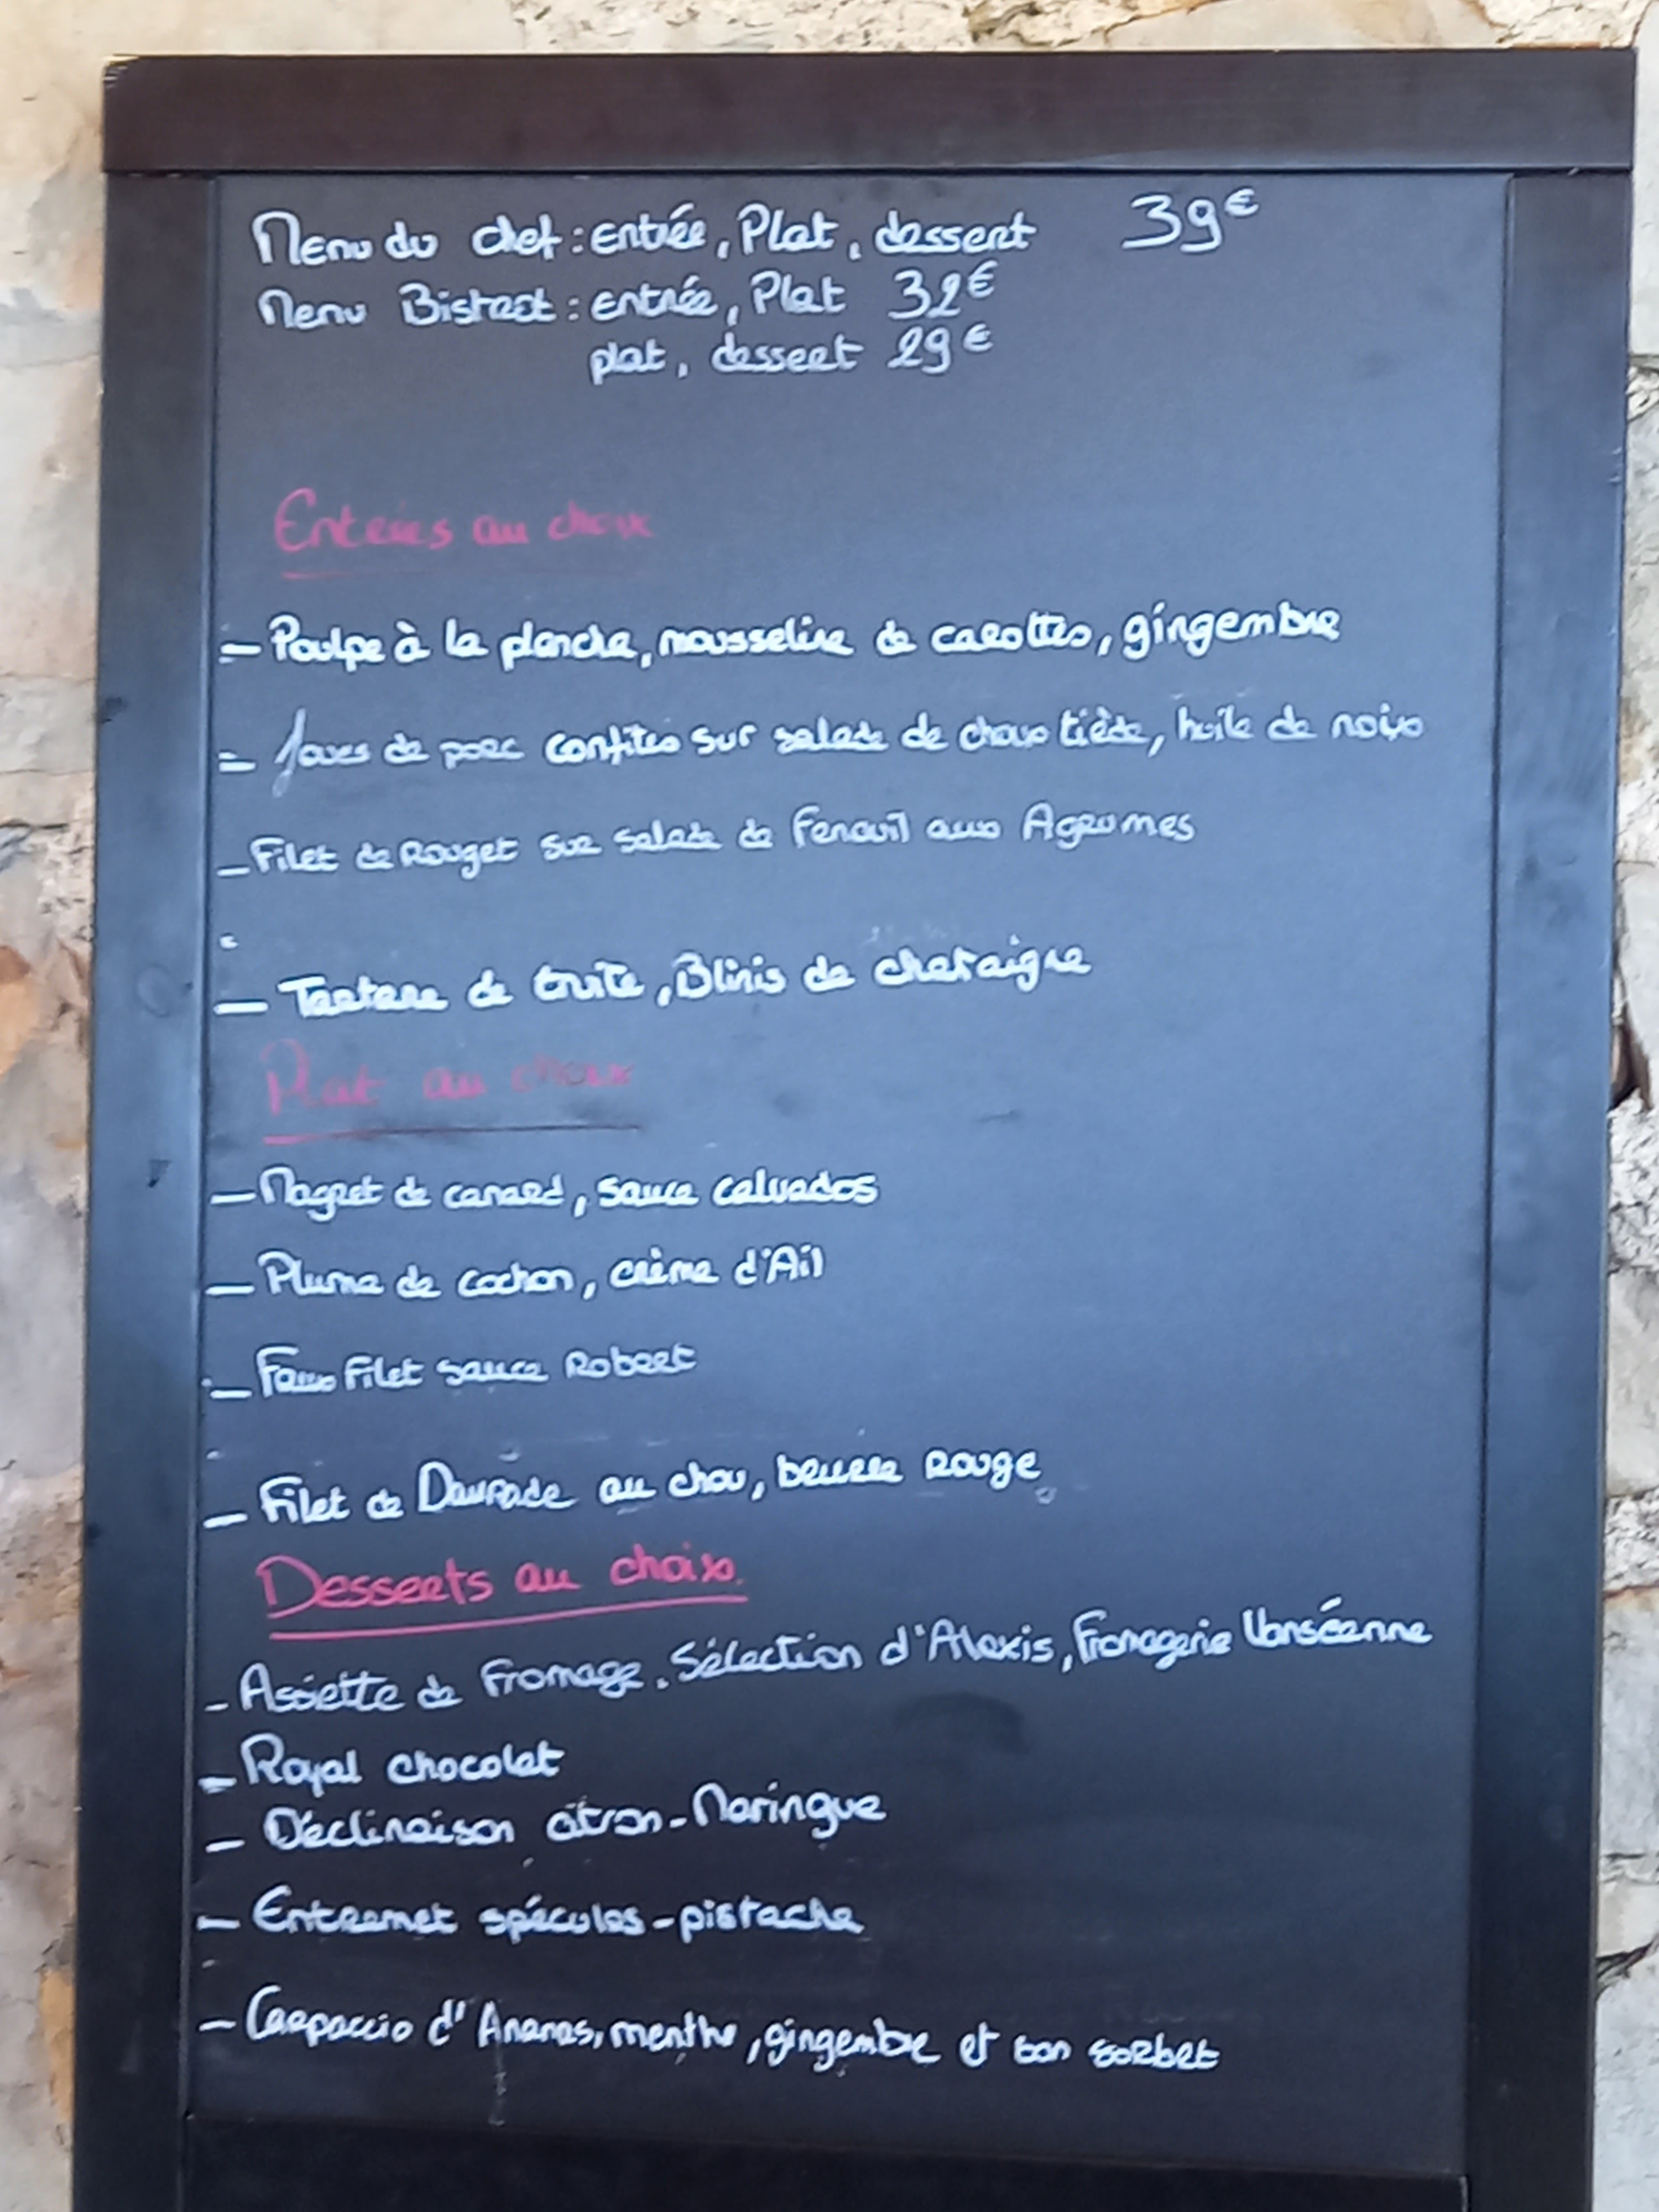 Menu du chef : entrée, Plat, dessert 39€
Menu Bistrot : entrée, Plat 32€
plat, dessert 29€
Entrées au choix
- Poulpe à la plancha, mousseline de carottes, gingembre
- Joues de porc confites sur salade de choux tiède, huile de noix
- Filet de Rouget sur salade de Fenouil aux Agrumes
- Tartare de truite, Blinis de chataigne
Plat au choix
- Magret de canard, sauce calvados
- Pluma de cochon, crème d'Ail
- Faux Filet sauce Robert
- Filet de Daurade au chou, beurre Rouge
Desserts au choix.
- Assiette de Fromage. Sélection d'Alexis, Fromagerie Vanséenne
- Royal chocolat
- Déclinaison citron-Meringue
- Entremet spéculos-pistache
- Carpaccio d'Ananas, menthe, gingembre et son sorbet